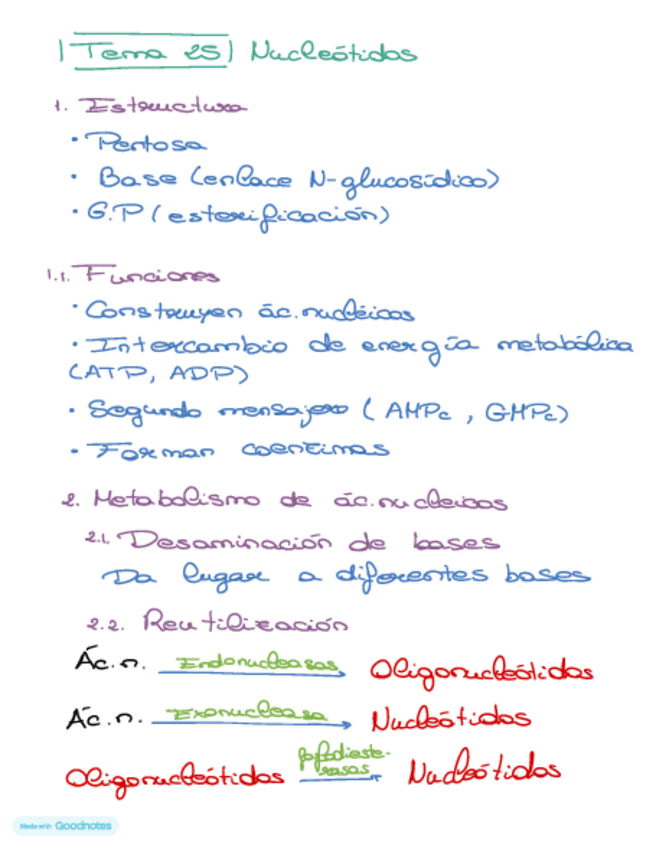 |Tema 25| Nucleótidos
1. Estructura
• Pentosa
• Base (enlace N-glucosídico)
• G.P (esterificación)
1.1. Funciones
• Construyen ác. nucléicos
• Intercambio de energía metabólica
(ATP, ADP)
• Segundo mensajero (AMPc, GMPc)
• Forman coenzimas
2. Metabolismo de ác. nucleicos
2.1. Desaminación de bases
Da lugar a diferentes bases
2.2. Reutilización
Ác. n. Endonucleasas Oligonucleótidos
Ác. n. Exonucleasa Nucleótidos
Oligonucleótidos fosfodiesterasas Nucleótidos
Made with Goodnotes